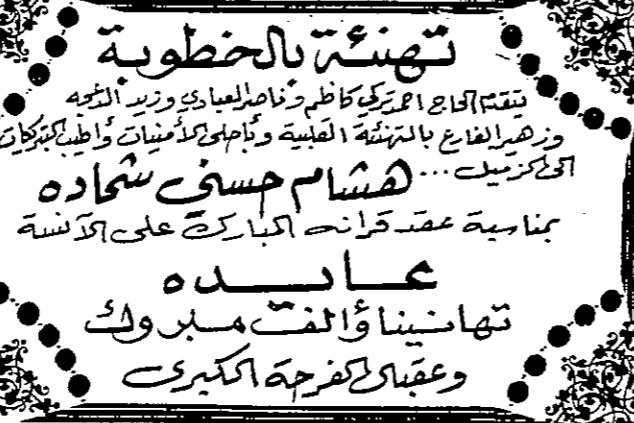 تهنئة بالخطوبة
يتقدم الحاج احمد تركي كاظم وناصر العبادي وزيد
وزهير الفارع بالتهنئة القلبية وبأحلى الأمنيات وأطيب التبركات
الى الزميل ... هشام حسني شحاده
بمناسبة عقد قرانه المبارك على الآنسة
عايده
تهانينا وألف مبروك
وعقبى الفرحة الكبرى